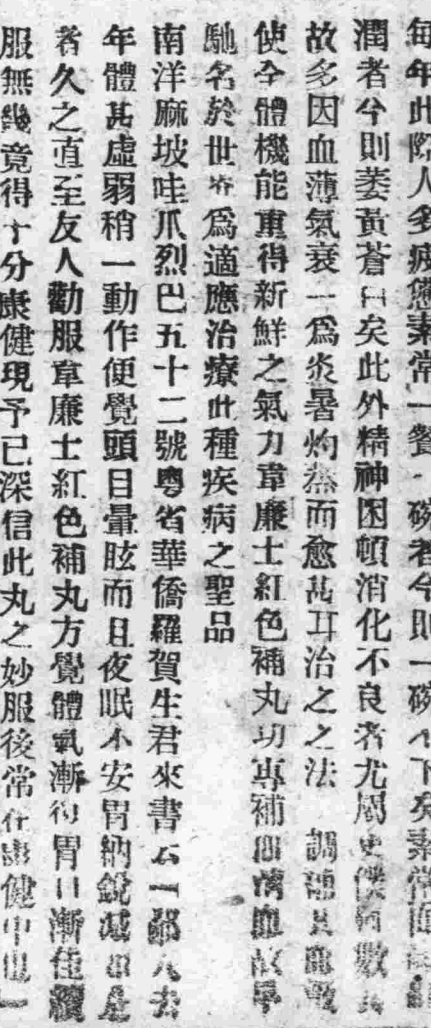 每年此際人多疲憊素常一餐 碗者今則一碗 下矣素常
潤者今則萎黃蒼白矣此外精神困頓消化不良者尤屬 數
故多因血薄氣衰一爲炎暑灼蒸而愈甚耳治之之法 調補其血
使全體機能重得新鮮之氣力韋廉士紅色補丸功專補血清血故早
馳名於世 爲適應治療此種疾病之聖品
南洋麻坡哇爪烈巴五十二號粵省華僑羅賀生君來書云 去
年體甚虛弱稍一動作便覺頭目暈眩而日夜眠不安胃納銳減如是
者久之直至友人勸服韋廉士紅色補丸方覺體氣漸 胃口漸佳
服無幾竟得十分康健現予已深信此丸之妙服後常在康健中也